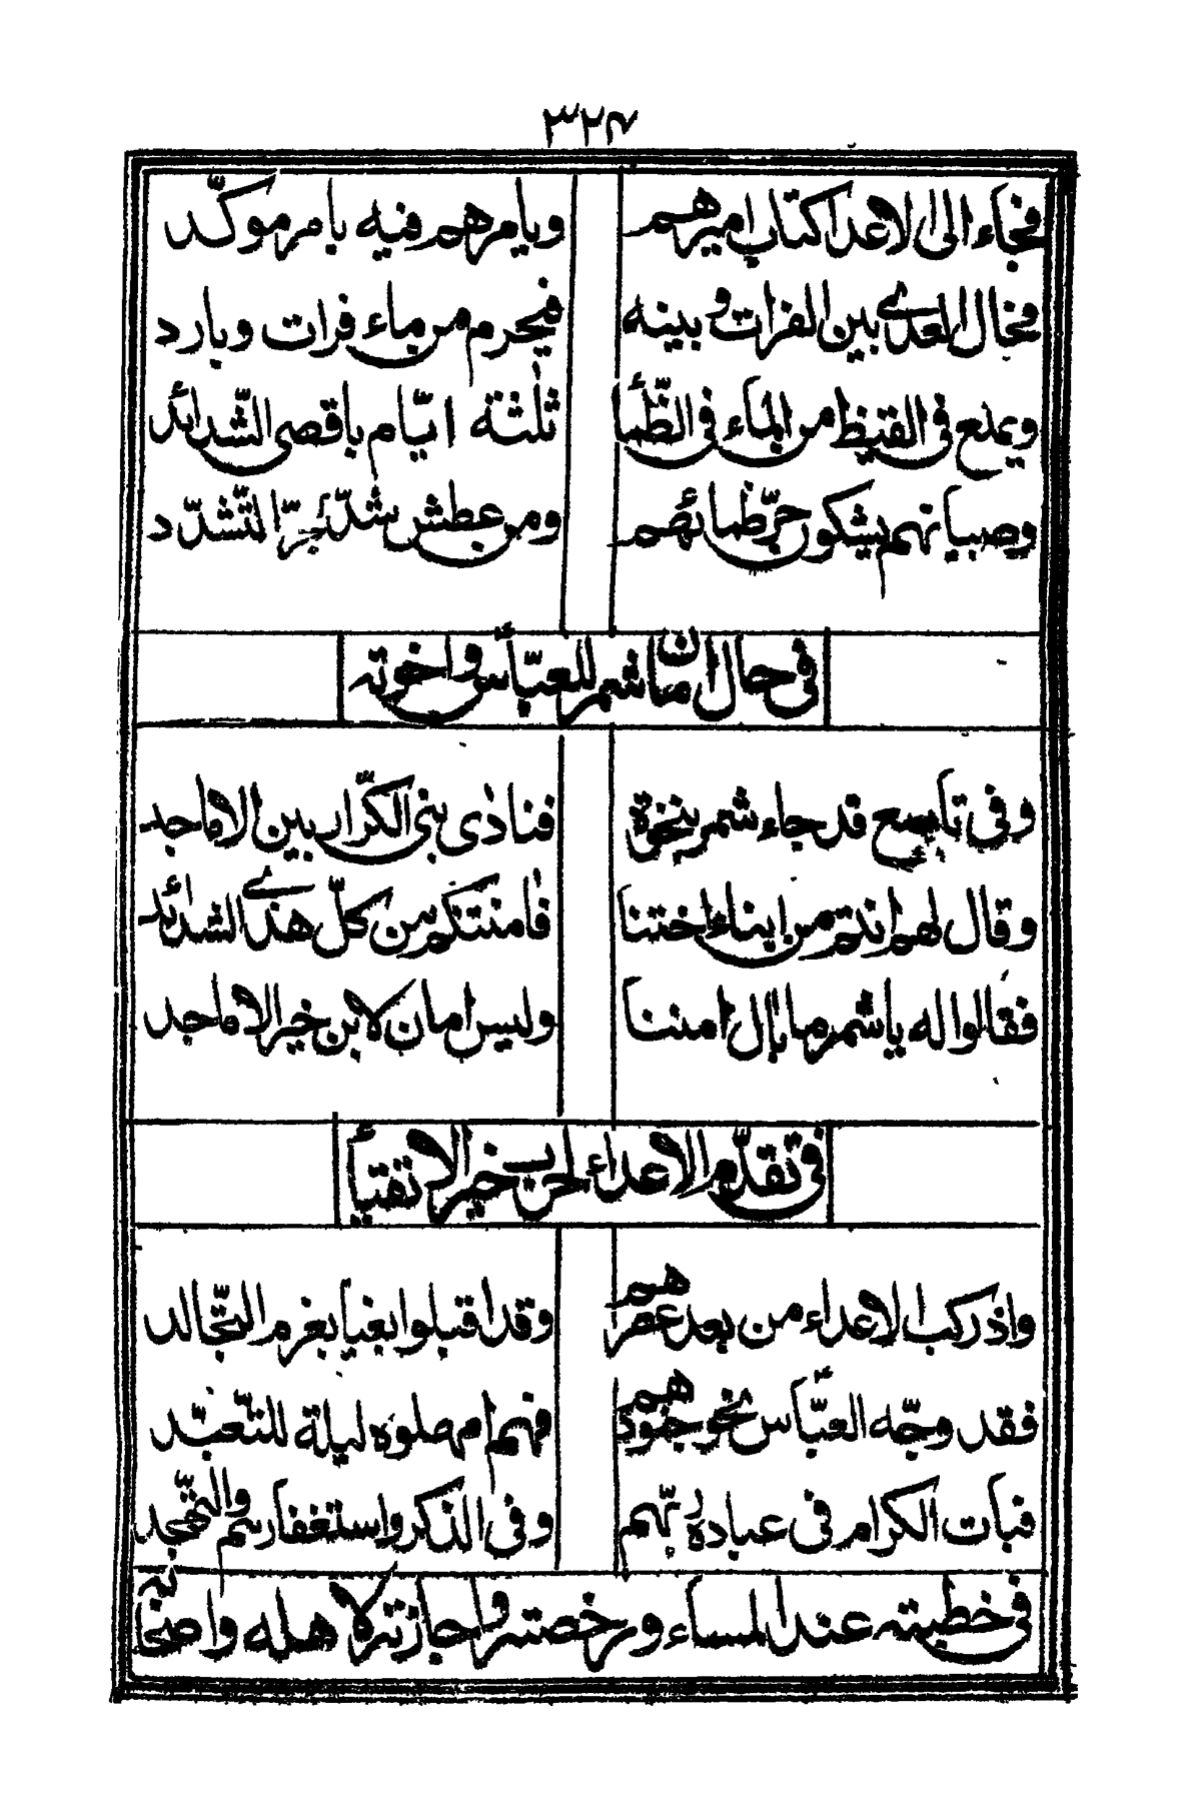 ٣٢٤
فجاء الى الاعدا كتاب اميرهم ويامرهم فيه بامر موكّد
فحال العدى بين الفرات وبينه فيحرم من ماء فرات وبارد
ويمنع فى القيظ من الماء فى الظّمأ ثلثة ايّام باقصى الشّدائد
وصبيانهم يشكون حرّ ظمائهم ومن عطش شدّ لحرّ التّشدّد
فى حال امان شمر للعبّاس واخوته
وفى تاسع قد جاء شمر بنخوة فنادى بنى الكرّار بين الاماجد
وقال لهم انتم من ابناء اختنا فامنتكم من كلّ هذى الشدائد
فقالوا له يا شمر ما بال امننا وليس امان لابن خير الاماجد
فى تقدّم الاعداء لحرب خير الاتقياء
واذ ركب الاعداء من بعد عصرهم وقد اقبلوا بغيا بغرم التّجالد
فقد وجّه العبّاس نحو جنودهم فهم امهلوه ليلة للتّعبّد
فبات الكرام فى عبادة ربّهم وفى الذكر واستغفارهم والتّهجّد
فى خطبته عند المساء ورخصته واجازته لاهله واصحابه